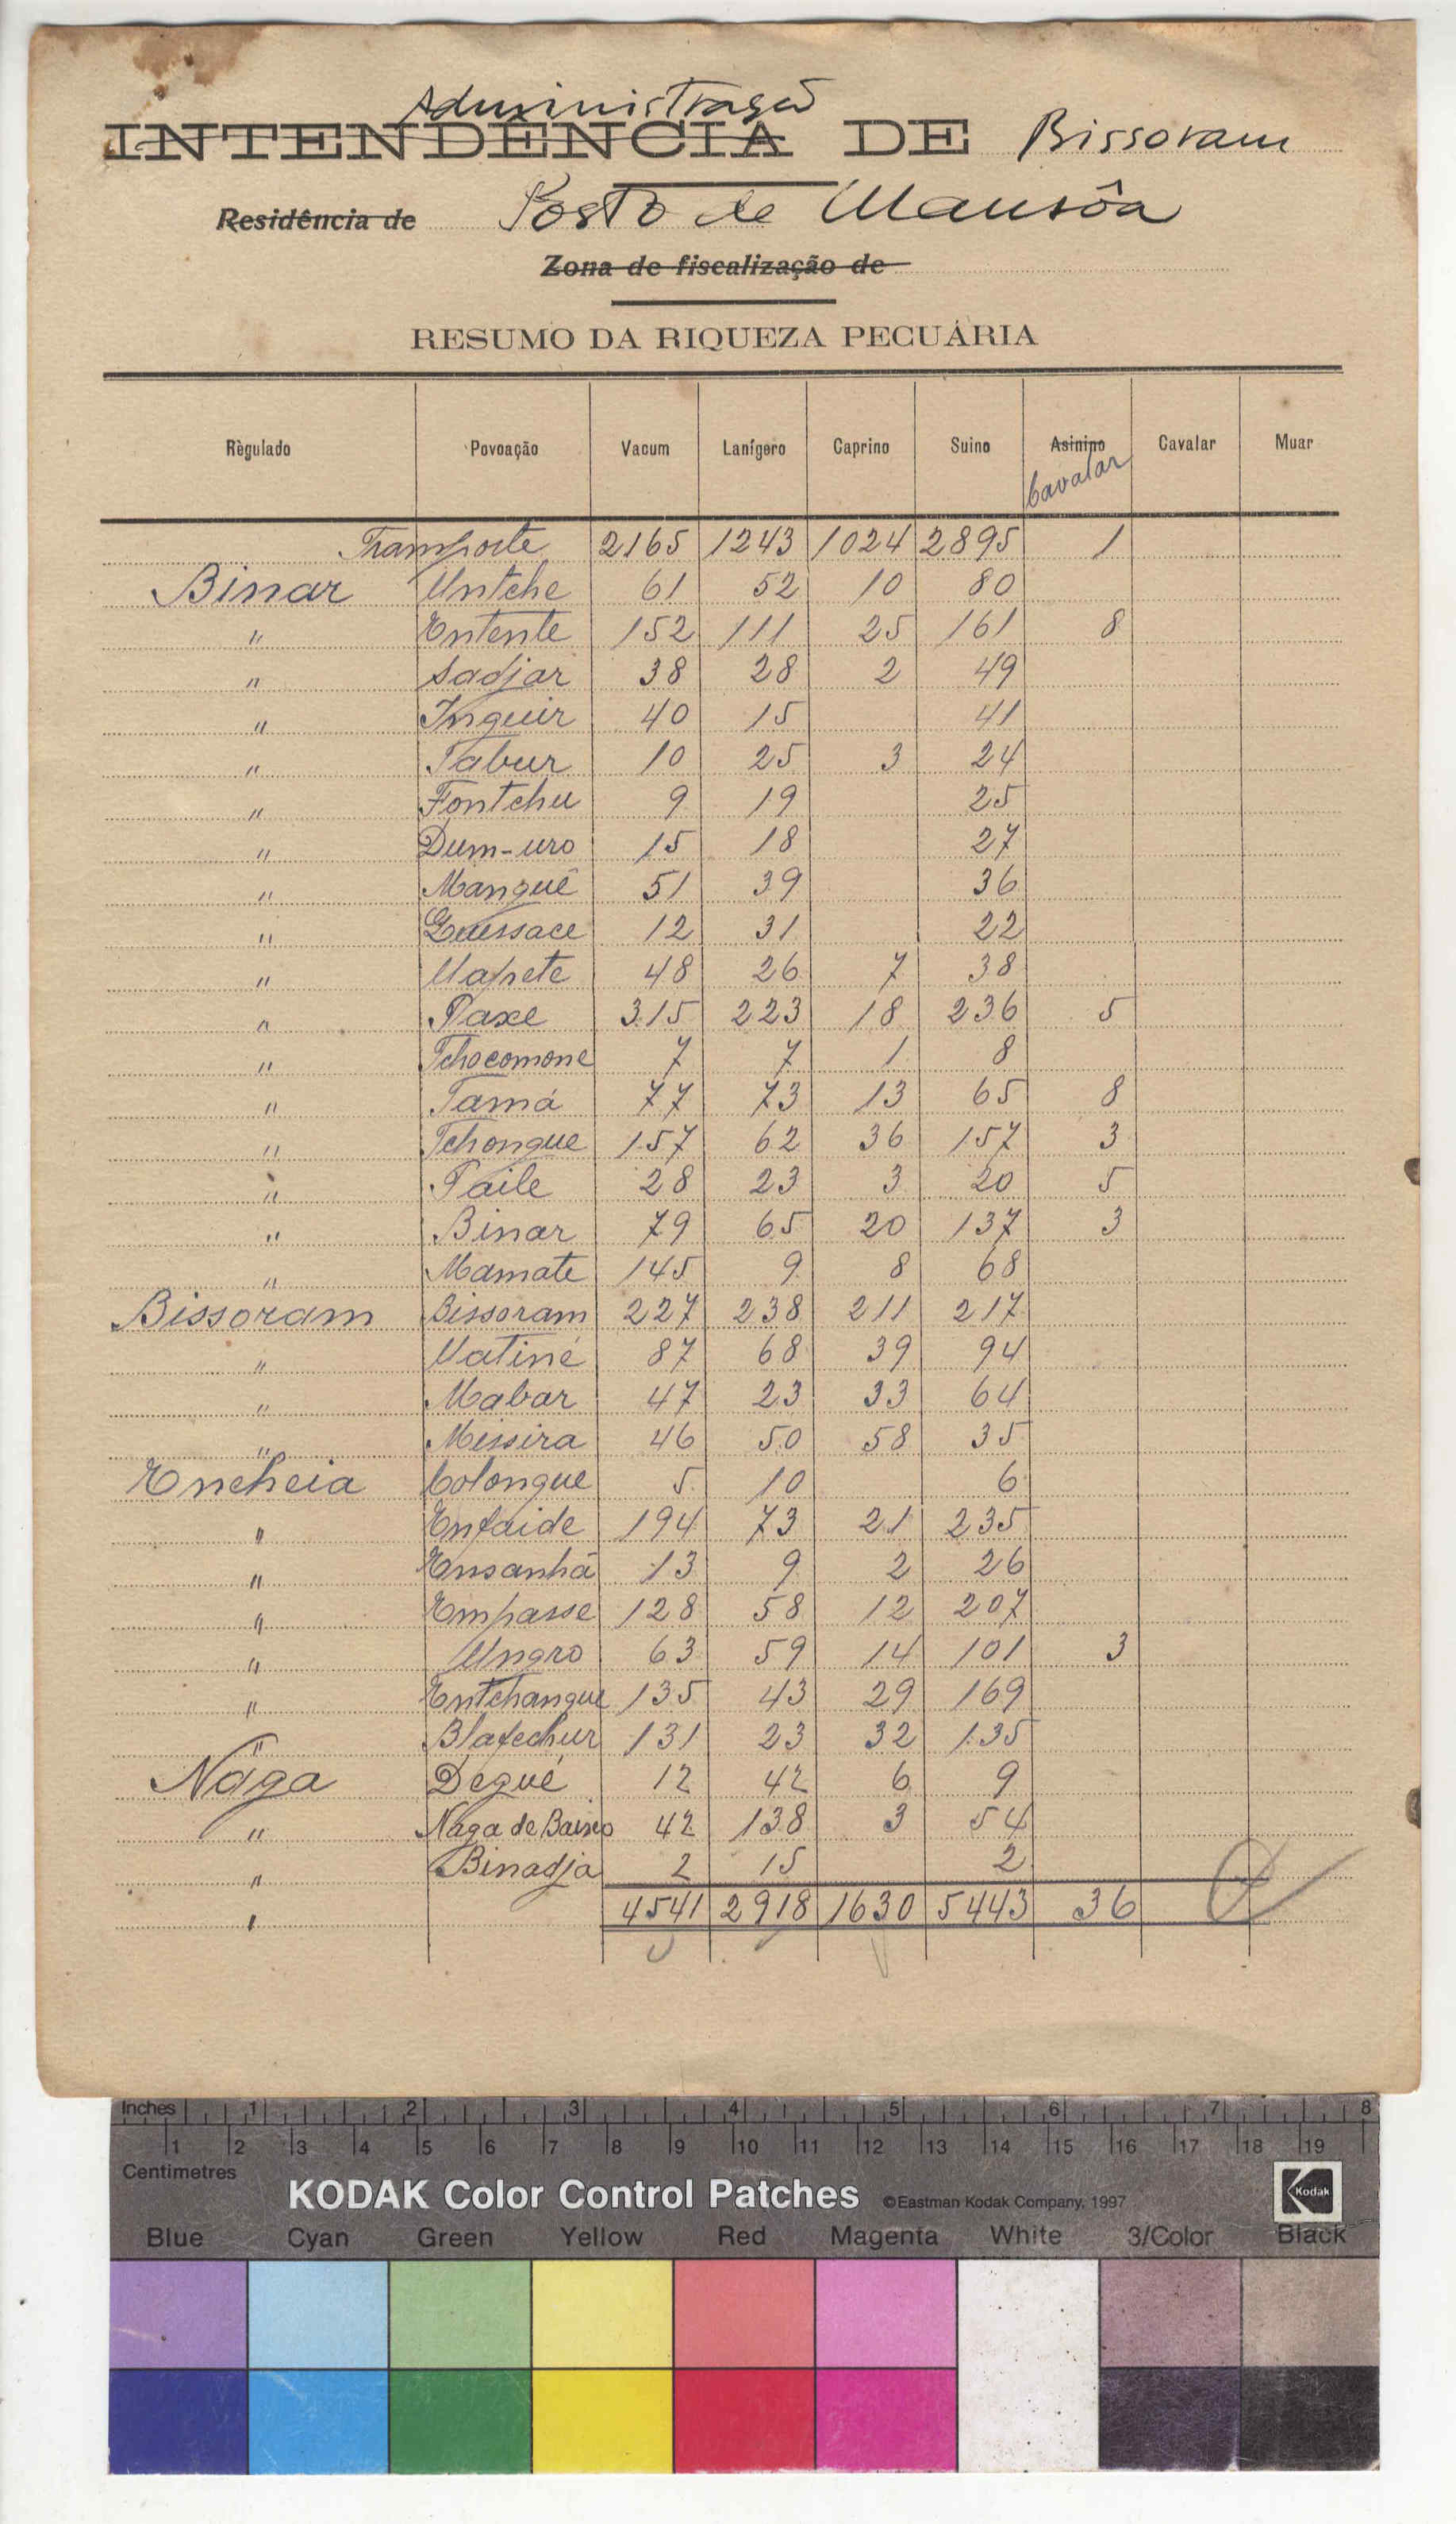 Administração
INTENDÊNCIA DE Bissoram
Residência de Posto de Mansôa
Zona de fiscalização de
RESUMO DA RIQUEZA PECUÁRIA
Règulado Povoação Vacum Lanígero Caprino Suino Asinino Cavalar Muar
Cavalar
Transporte 2165 1243 1024 2895 1
Binar Untche 61 52 10 80
" Entente 152 111 25 161 8
" Sadjar 38 28 2 49
" Inquir 40 15 41
" Tabur 10 25 3 24
" Fontchu 9 19 25
" Dum-uro 15 18 27
" Manquê 51 39 36
" Guessace 12 31 22
" Uapete 48 26 7 38
" Paxe 315 223 18 236 5
" Tchocomone 7 7 1 8
" Tamá 77 73 13 65 8
" Tchongue 157 62 36 157 3
" Paile 28 23 3 20 5
" Binar 79 65 20 137 3
" Mamate 145 9 8 68
Bissoram Bissoram 227 238 211 217
" Uatiné 87 68 39 94
" Mabar 47 23 33 64
" Missira 46 50 58 35
Encheia Colongue 5 10 6
" Enfaide 194 73 21 235
" Ensanhã 13 9 2 26
" Empasse 128 58 12 207
" Ungro 63 59 14 101 3
" Entchangue 135 43 29 169
" Blafechur 131 23 32 135
Nága Degué 12 42 6 9
" Nága de Baixo 42 138 3 54
" Binadja 2 15 2
" 4541 2918 1630 5443 36
Inches 1 2 3 4 5 6 7 8
1 2 3 4 5 6 7 8 9 10 11 12 13 14 15 16 17 18 19
Centimetres
KODAK Color Control Patches ©Eastman Kodak Company, 1997 Kodak
Blue Cyan Green Yellow Red Magenta White 3/Color Black